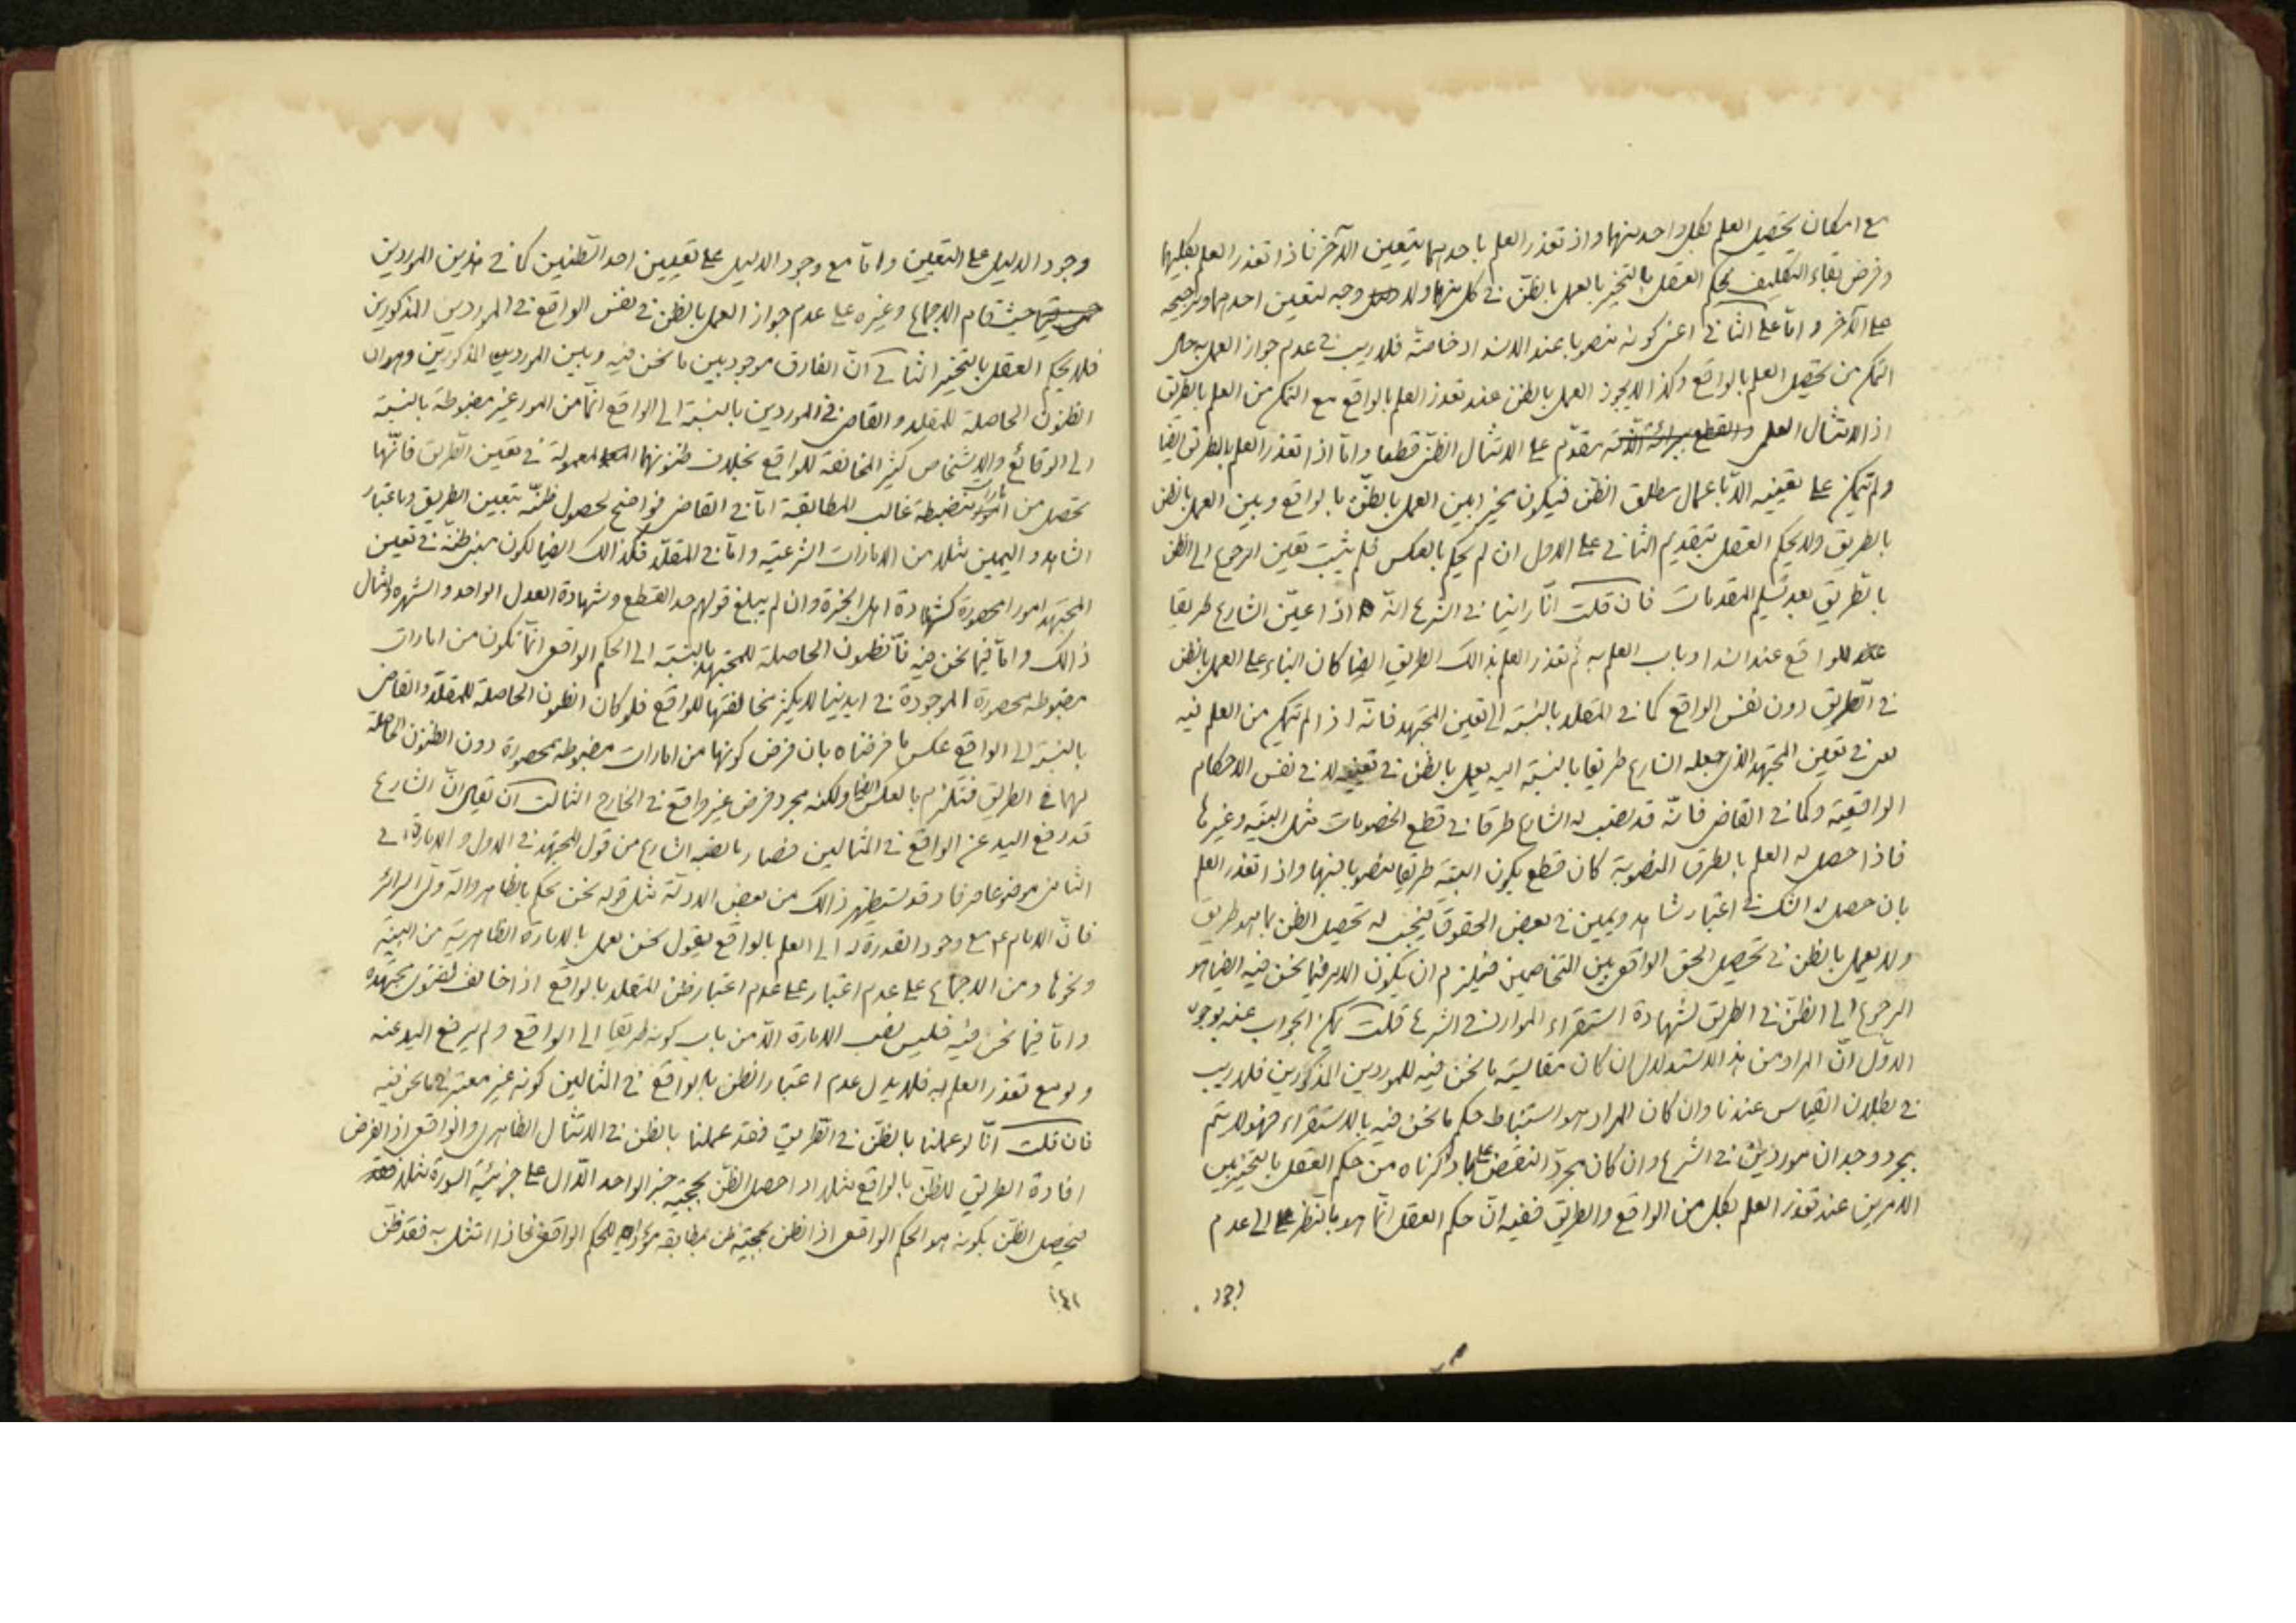 مع امكان تحصيل العلم بكل واحد منهما واذ تعذر العلم باحدهما يتعين الآخر فاذا تعذر العلم بكليهما
وفرض بقاء التكليف يحكم العقل بالتخيير بالعمل بالظن في كل منهما ولا وجه لتعيين احدهما وترجيحه
على الآخر و امّا على الثاني اعني كونه منصوبا عند الانسداد خاصّة فلا ريب في عدم جواز العمل به حال
التمكن من تحصيل العلم بالواقع وكذا لا يجوز العمل بالظن عند تعذر العلم بالواقع مع التمكن من العلم بالطريق
اذ الامتثال العلمي والقطع ببرائة الذّمّة مقدّم على الامتثال الظنّي قطعا وامّا اذا تعذر العلم بالطريق ايضا
ولم يتمكن على تعيينه الّا باعمال مطلق الظنّ فيكون مخيرا بين العمل بالظنّ بالواقع وبين العمل بالظن
بالطريق ولا يحكم العقل بتقديم الثاني على الاول ان لم يحكم بالعكس فلم يثبت تعين الرجوع الى الظن
بالطريق بعد تسليم المقدمات فان قلت انّا راينا في الشرع انّه اذا عيّن الشارع طريقا
للواقع عند انسداد باب العلم به ثم تعذر العلم بذالك الطريق ايضا كان البناء على العمل بالظن
في الطريق دون نفس الواقع كما في المقلد بالنسبة الى تعين المجتهد فانّه اذ لم يتمكن من العلم فيه
يعني في تعين المجتهد الذي جعله الشارع طريقا بالنسبة اليه يعمل بالظن في تعيينه لا في نفس الاحكام
الواقعية وكما في القاضي فانّه قد نصب له الشارع طرقا في قطع الخصومات مثل البينة وغيرها
فاذا حصل له العلم بالطرق المنصوبة كان قطع بكون البينة طريقا منصوبا فبها واذا تعذر العلم
بان حصل له الشك في اعتبار شاهد ويمين في بعض الحقوق فيجب له تحصيل الظن بما هو طريق
ولا يعمل بالظن في تحصيل الحق الواقعي بين المتخاصمين فيلزم ان يكون الامر فيما نحن فيه ايضا هو
الرجوع الى الظنّ في الطريق بشهادة استقراء الموارد في الشرع قلت يمكن الجواب عنه بوجوه
الاوّل انّ المراد من هذا الاستدلال ان كان مقايسة ما نحن فيه للموردين المذكورين فلا ريب
في بطلان القياس عندنا وان كان المراد هو استنباط حكم ما نحن فيه بالاستقراء فهو لا يتم
بمجرد وجدان موردين في الشرع وان كان مجرّد النقض على ما ذكرناه من حكم العقل بالتخيير بين
الامرين عند تعذر العلم بكل من الواقع والطريق ففيه انّ حكم العقل انّما هو بالنظر الى عدم
وجود الدليل على التعيين وامّا مع وجود الدليل على تعيين احد الظنين كما في هذين الموردين
حيث قام الاجماع وغيره على عدم جواز العمل بالظن في نفس الواقع في الموردين المذكورين
فلا يحكم العقل بالتخيير الثاني انّ الفارق موجود بين ما نحن فيه وبين الموردين المذكورين وهو ان
الظنون الحاصلة للمقلد و القاضي في الموردين بالنسبة الى الواقع انّما من امور غير مضبوطة بالنسبة
الى الوقائع والاشخاص كثير المخالفة للواقع بخلاف ظنونهما المعمولة في تعين الطريق فانّها
تحصل من امارات منضبطة غالب المطابقة امّا في القاضي فواضح لحصول ظنّه بتعيين الطريق وباعتبار
الشاهد و اليمين مثلا من الامارات الشرعية و امّا في المقلّد فكذالك ايضا لكون مبنى ظنّه في تعين
المجتهد امورا محصورة كشهادة اهل الخبرة وان لم يبلغ قولهم حد القطع وشهادة العدل الواحد و الشهره وامثال
ذالك و امّا فيما نحن فيه فالظنون الحاصلة للمجتهد بالنسبة الى الحكم الواقعي انّما تكون من امارات
مضبوطة محصورة الموجودة في ايدينا لا يكثر مخالفتها للواقع فلو كان الظنون الحاصلة للمقلّد والقاضي
بالنسبة الى الواقع عكس ما فرضناه بان فرض كونها من امارات مضبوطة محصورة دون الظنون الحاصلة
لهما في الطريق فنلتزم بالعكس ايضا ولكنه مجرد فرض غير واقع في الخارج الثالث ان يقال انّ الشارع
قد رفع اليد عن الواقع في المثالين فصار ما نصبه الشارع من قول المجتهد في الاول و الامارة في
الثاني موضوعا صرفا وقد يستظهر ذالك من بعض الادلة مثل قوله نحن نحكم بالظاهر والله ولي السرائر
فانّ الامام ع مع وجود القدرة له الى العلم بالواقع يقول نحن نعمل بالامارة الظاهرية من البينة
ونحوها ومن الاجماع على عدم اعتبار على عدم اعتبار ظن المقلد بالواقع اذا خالف لفتوى مجتهده
وامّا فيما نحن فيه فليس نصب الامارة الّا من باب كونه طريقا الى الواقع ولم يرفع اليد عنه
ولو مع تعذر العلم به فلا يدل عدم اعتبار الظن بالواقع في المثالين كونه غير معتبر فيما نحن فيه
فان قلت انّا لو عملنا بالظنّ في الطريق فقد عملنا بالظن في الامتثال الظاهري والواقعي اذ الفرض
افادة الطريق للظن بالواقع مثلا اذا حصل الظنّ بحجية خبر الواحد الدّال على جزئية السورة مثلا فقد
فيحصل الظنّ بكونه هو الحكم الواقعي اذ الظن بحجيته ظن بمطابقة مؤداه للحكم الواقعي فاذا امتثل به فقد ظنّ